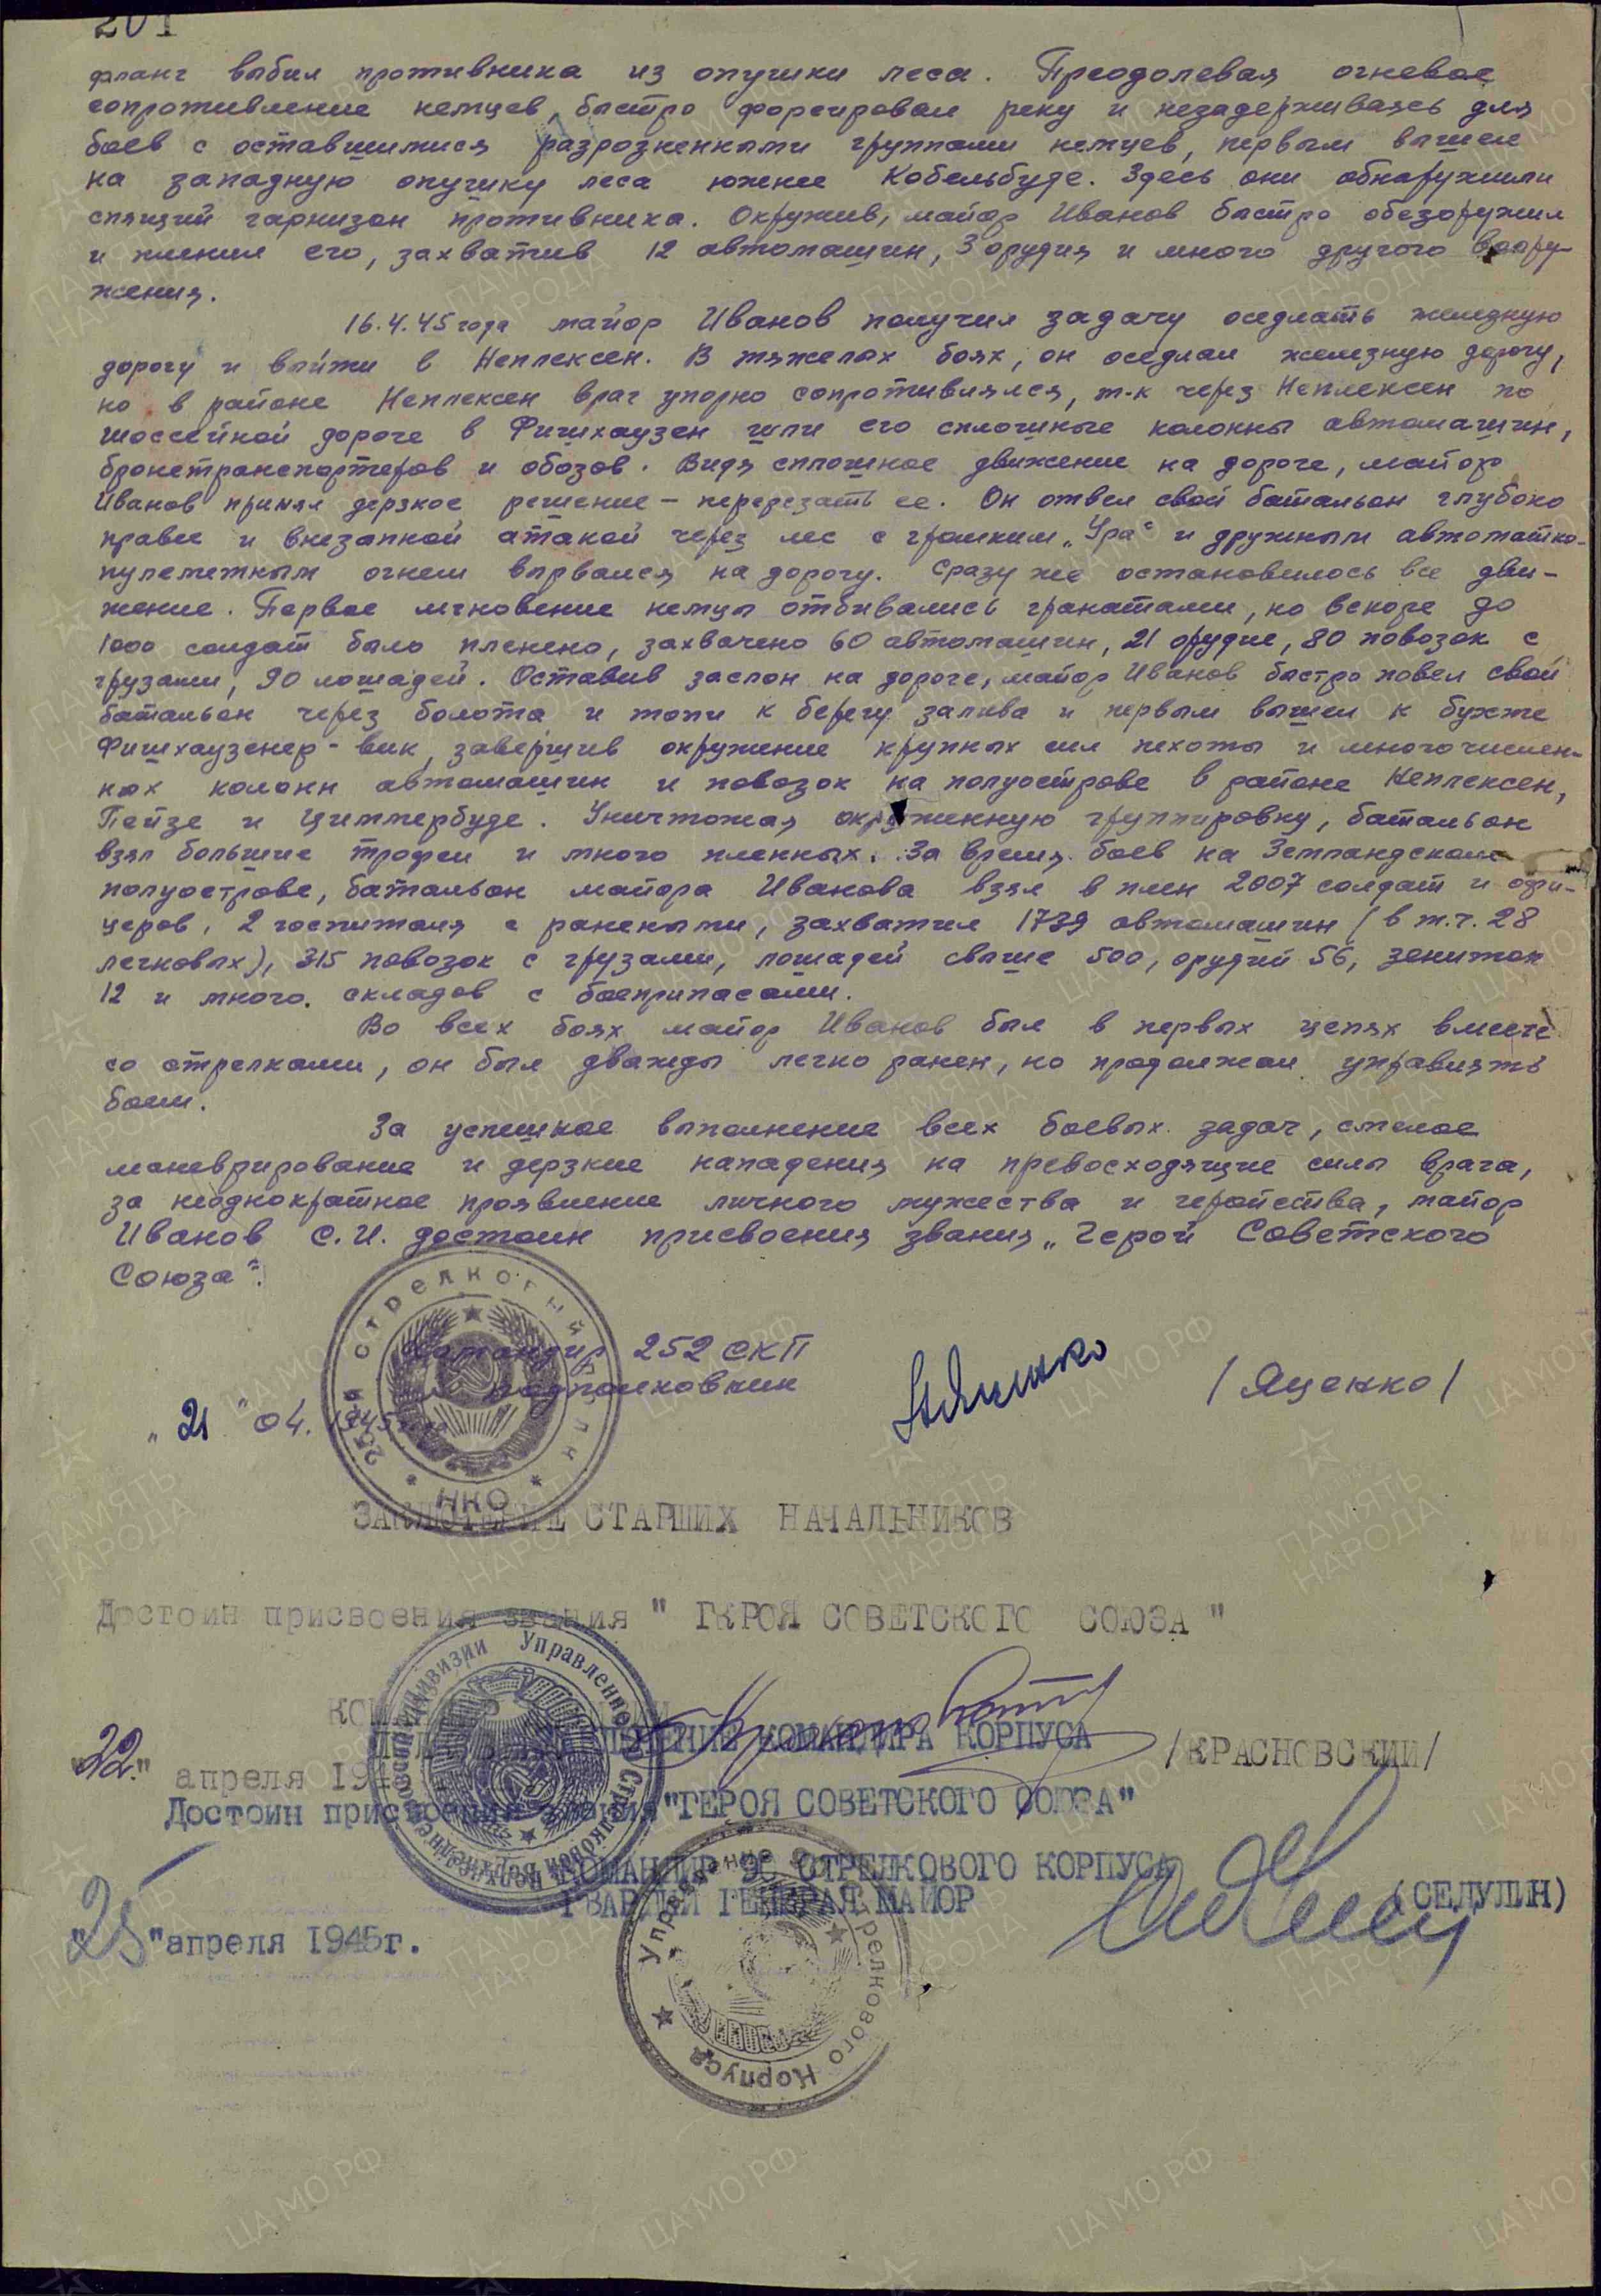 201
фланг выбил противника из опушки леса. Преодолевая огневое
сопротивление немцев, быстро форсировал реку и незадерживаясь для
боев с оставшимися разрозненными группами немцев, первым вышел
на западную опушку леса южнее Кобельбуде. Здесь они обнаружили
спящий гарнизон противника. Окружив, майор Иванов быстро обезоружил
и пленил его, захватив 12 автомашин, 3 орудия и много другого воору-
жения.
16.4.45 года майор Иванов получил задачу оседлать железную
дорогу и выйти в Неплексен. В тяжелых боях, он оседлал железную дорогу,
но в районе Неплексен враг упорно сопротивлялся, т-к через Неплексен по
шоссейной дороге в Фишхаузен шли его сплошные колонны автомашин,
бронетранспортеров и обозов. Видя сплошное движение на дороге, майор
Иванов принял дерзкое решение — перерезать ее. Он отвел свой батальон глубоко
правее и внезапной атакой через лес с громким „Ура“ и дружным автоматно-
пулеметным огнем ворвался на дорогу. Сразу же остановилось все дви-
жение. Первое мгновение немцы отбивались гранатами, но вскоре до
1000 солдат было пленено, захвачено 60 автомашин, 21 орудие, 80 повозок с
грузами, 90 лошадей. Оставив заслон на дороге, майор Иванов быстро повел свой
батальон через болота и топи к берегу залива и первым вышел к бухте
Фишхаузенер-вик, завершив окружение крупных сил пехоты и многочислен-
ных колонн автомашин и повозок на полуострове в районе Неплексен,
Пейзе и Циммербуде. Уничтожая окруженную группировку, батальон
взял большие трофеи и много пленных. За время боев на Земландском
полуострове, батальон майора Иванова взял в плен 2007 солдат и офи-
церов, 2 госпиталя с ранеными, захватил 1739 автомашин (в т.ч. 28
легковых), 315 повозок с грузами, лошадей свыше 500, орудий 56, зениток
12 и много складов с боеприпасами.
Во всех боях майор Иванов был в первых цепях вместе
со стрелками, он был дважды легко ранен, но продолжал управлять
боем.
За успешное выполнение всех боевых задач, смелое
маневрирование и дерзкие нападения на превосходящие силы врага,
за неоднократное проявление личного мужества и геройства, майор
Иванов С.И. достоин присвоения звания „Герой Советского
Союза“.
Командир 252 СКП
подполковник
/Яценко/
„21“ 04. 1945 года
252й стрелковый полк
НКО
ЗАКЛЮЧЕНИЕ СТАРШИХ НАЧАЛЬНИКОВ
Достоин присвоения звания "ГЕРОЯ СОВЕТСКОГО СОЮЗА"
КОМАНДИРА КОРПУСА
/КРАСНОВСКИЙ/
"22" апреля 194
Достоин присвоения звания "ГЕРОЯ СОВЕТСКОГО СОЮЗА"
КОМАНДИР 90 СТРЕЛКОВОГО КОРПУСА
ГВАРДИИ ГЕНЕРАЛ МАЙОР
(СЕДУЛИН)
"25" апреля 1945г.
Управление Стрелковой дивизии
Управление Стрелкового Корпуса
ПАМЯТЬ НАРОДА
ЦА МО РФ